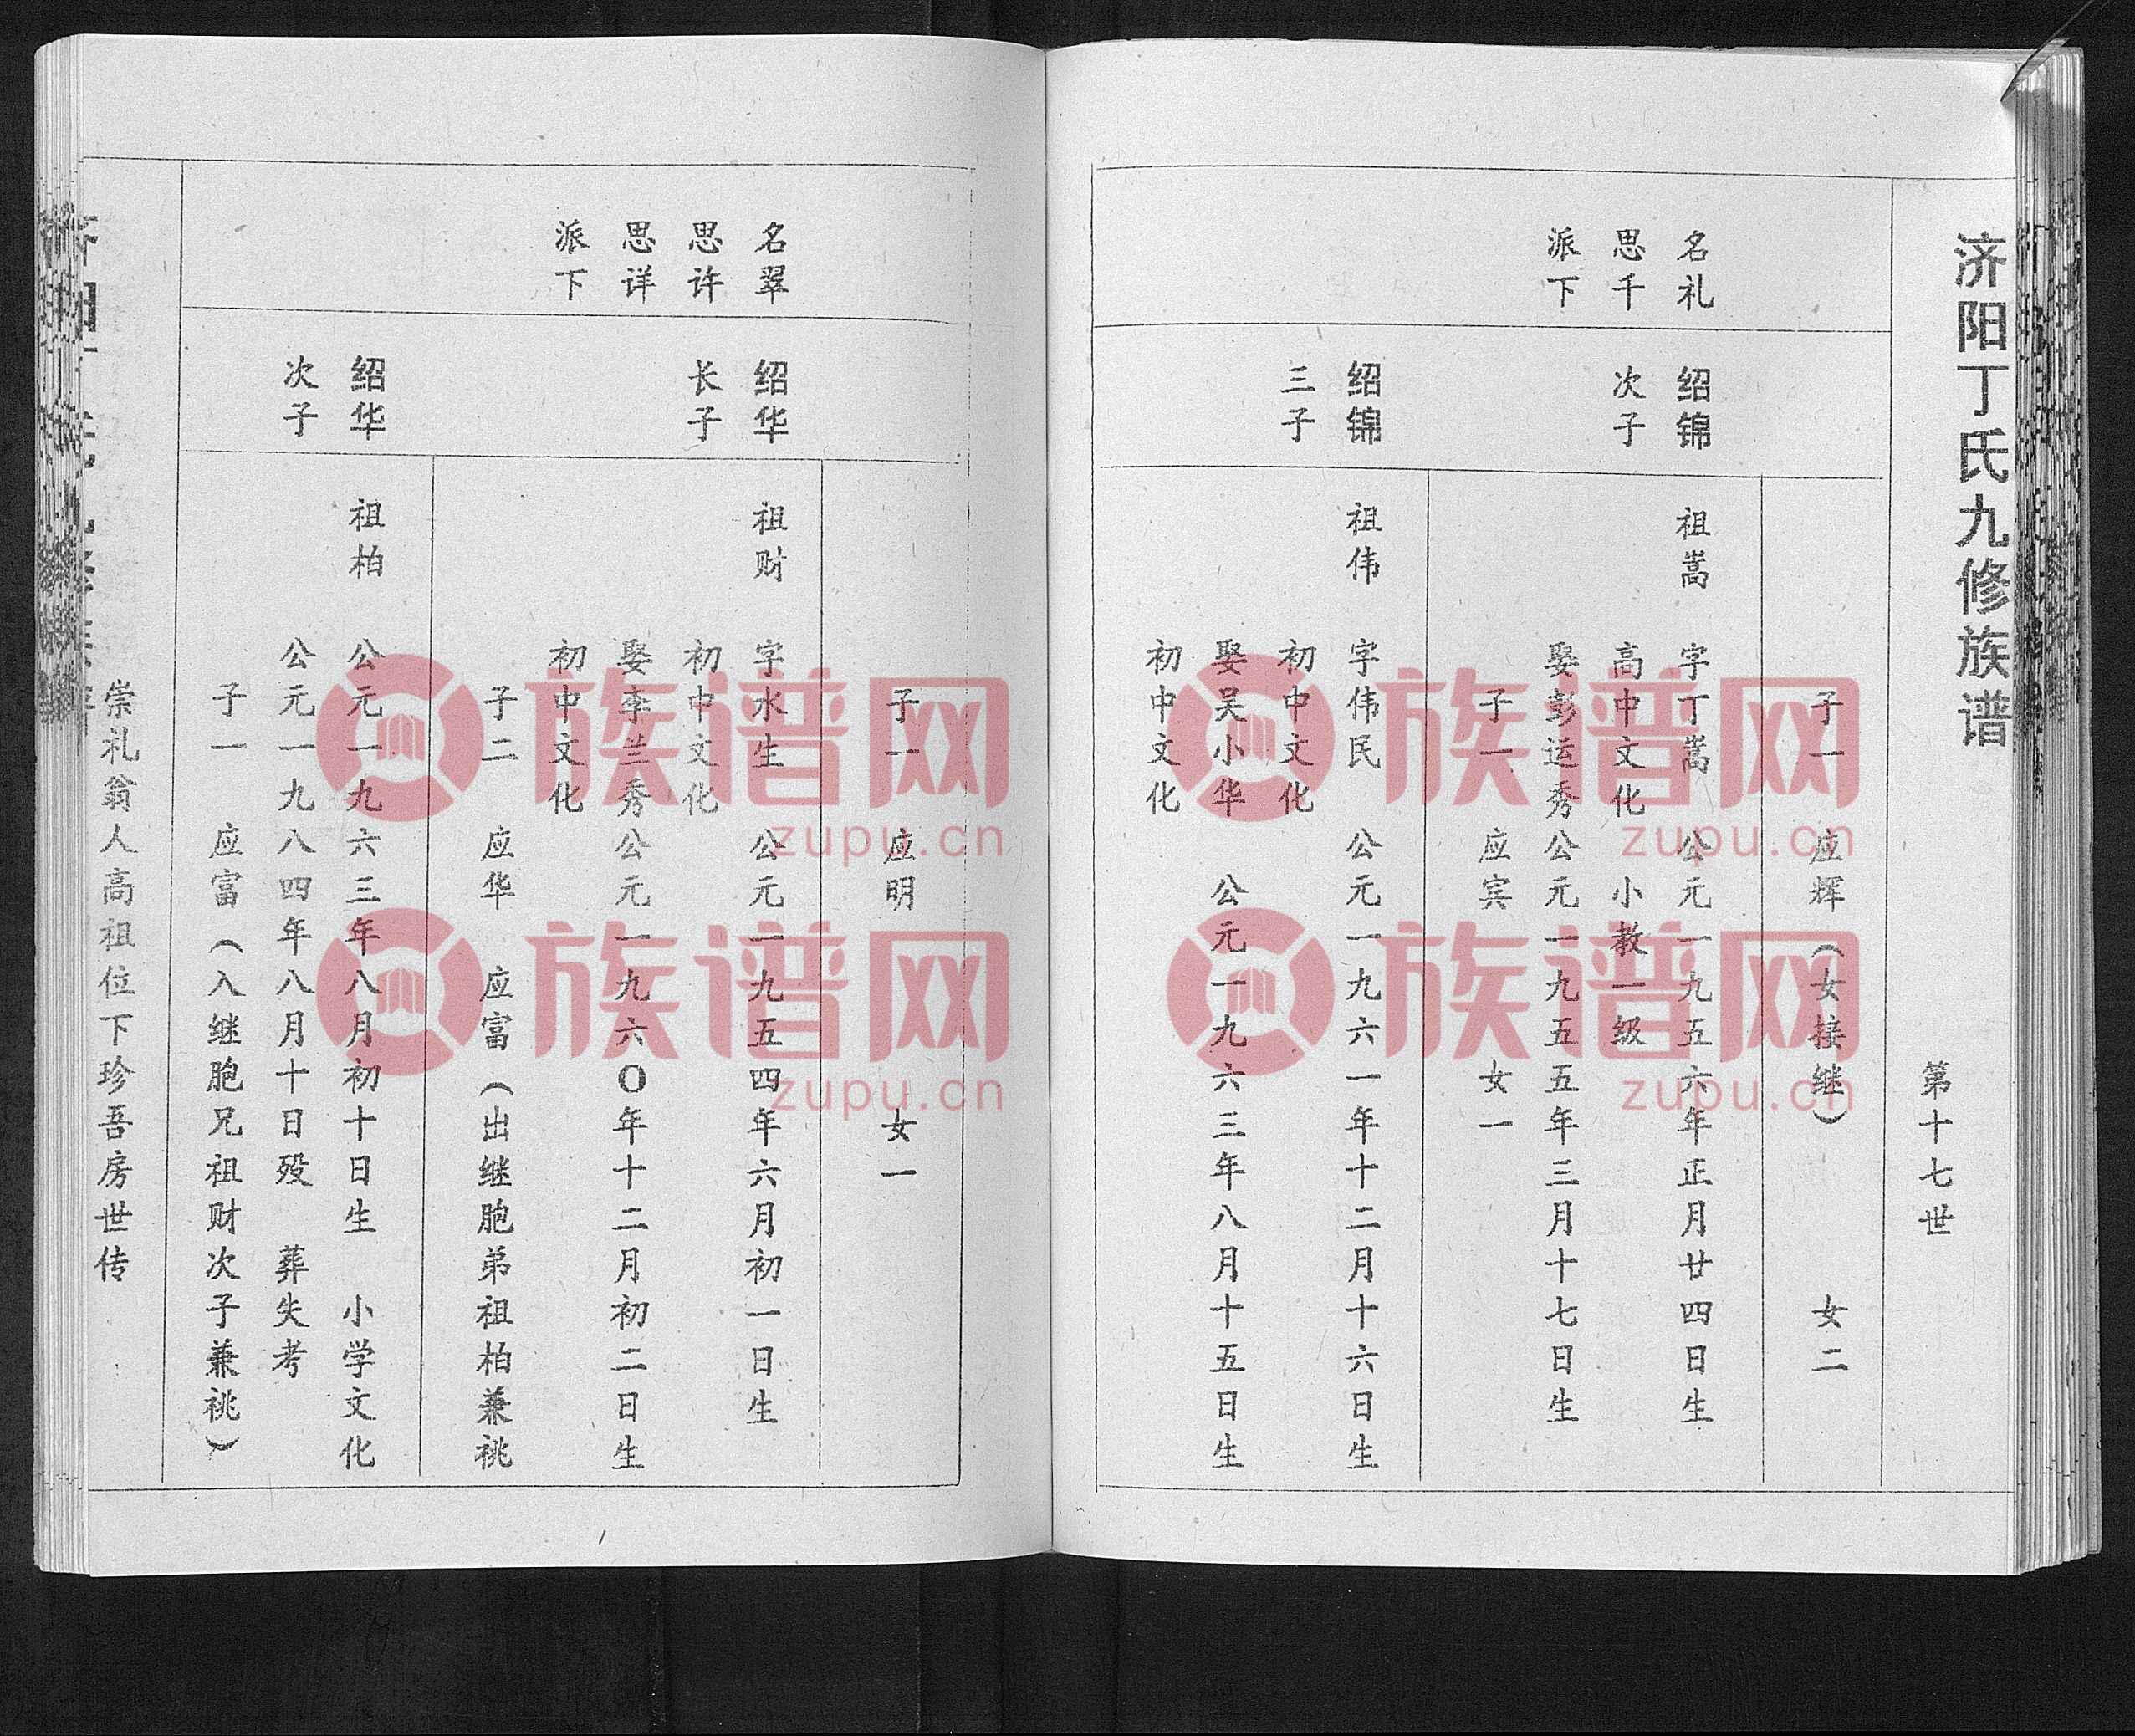 济阳丁氏九修族谱
第十七世
子一 应辉（女接继） 女二
名礼
思千
派下
绍锦
次子
祖嵩 字丁嵩 公元一九五六年正月廿四日生
高中文化 小教一级
娶彭运秀公元一九五五年三月十七日生
子一 应宾 女一
绍锦
三子
祖伟 字伟民 公元一九六一年十二月十六日生
初中文化
娶吴小华 公元一九六三年八月十五日生
初中文化
子一 应明 女一
名翠
思许
思详
派下
绍华
长子
祖财 字水生 公元一九五四年六月初一日生
初中文化
娶李兰秀公元一九六〇年十二月初二日生
初中文化
子二 应华 应富（出继胞弟祖柏兼祧
绍华
次子
祖柏 公元一九六三年八月初十日生 小学文化
公元一九八四年八月十日殁 葬失考
子一 应富（入继胞兄祖财次子兼祧）
崇礼翁人高祖位下珍吾房世传
族谱网
zupu.cn
族谱网
zupu.cn
族谱网
zupu.cn
族谱网
zupu.cn